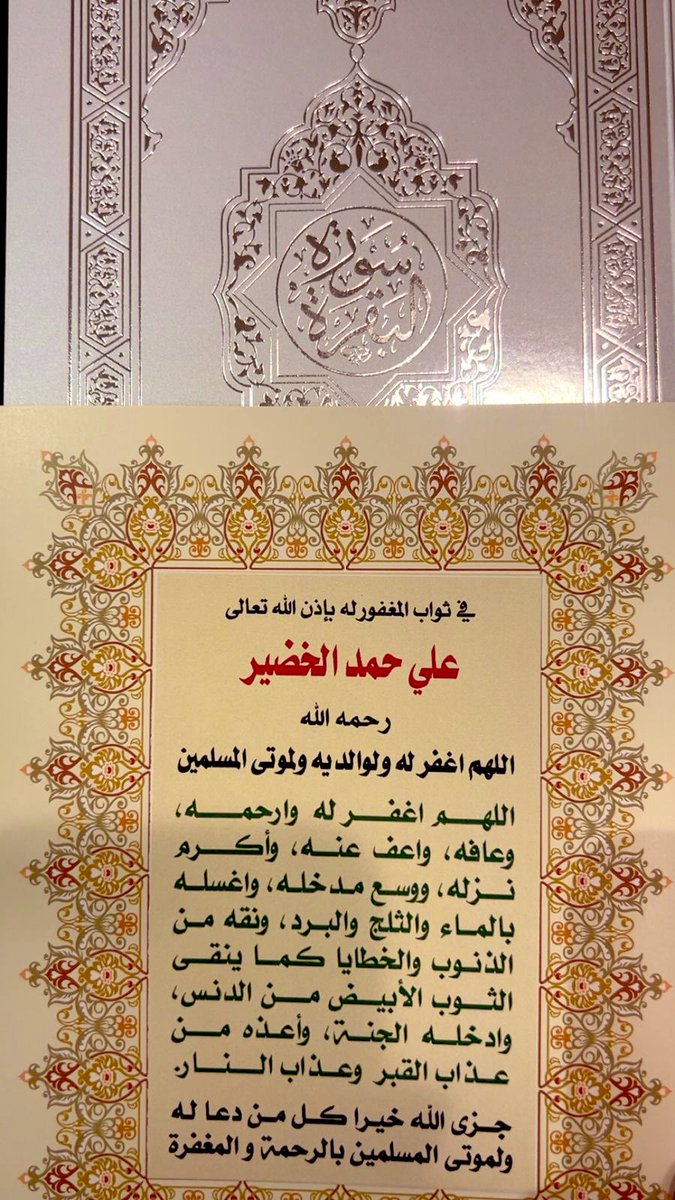 سُورَة
البَقَرَة
في ثواب المغفور له بإذن الله تعالى
علي حمد الخضير
رحمه الله
اللهم اغفر له ولوالديه ولموتى المسلمين
اللهم اغفر له وارحمه،
وعافه، واعف عنه، وأكرم
نزله، ووسع مدخله، واغسله
بالماء والثلج والبرد، ونقه من
الذنوب والخطايا كما ينقى
الثوب الأبيض من الدنس،
وادخله الجنة، وأعذه من
عذاب القبر وعذاب النار.
جزى الله خيرا كل من دعا له
ولموتى المسلمين بالرحمة و المغفرة